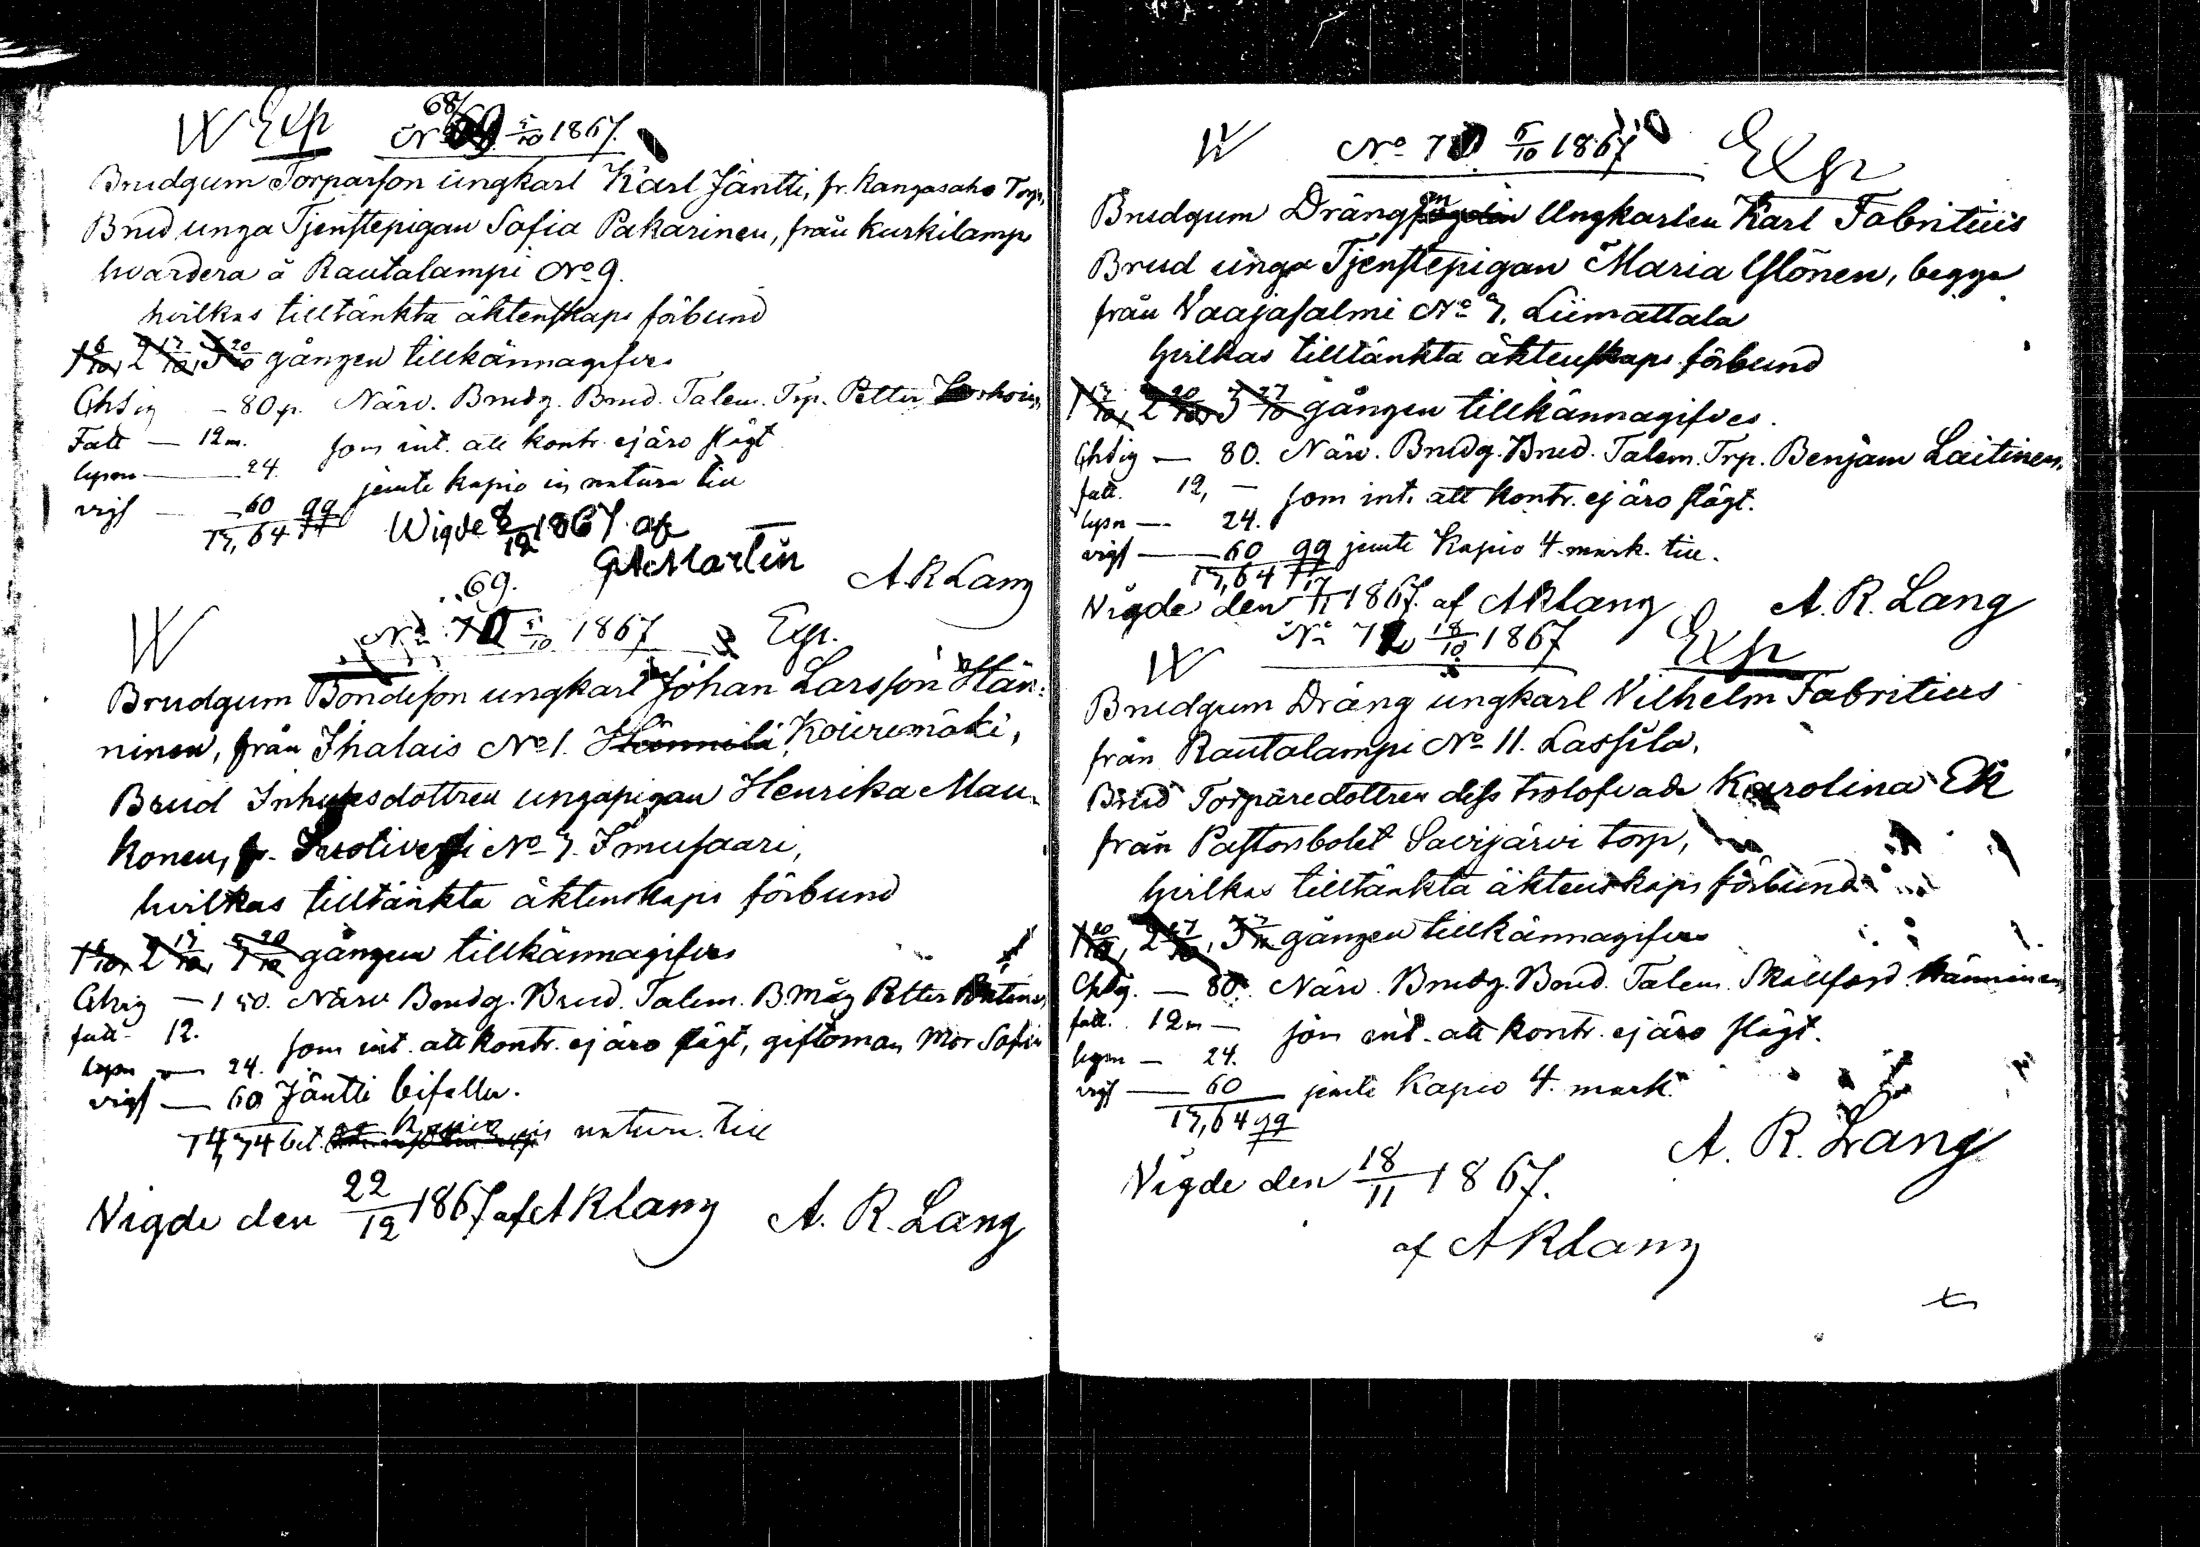 W Exp 68/ No 69 5/10 1867.
Brudgum Torparson ungkarl Karl Jäntti, fr. Kangasaho Torp,
Brud unga Tjenstepigan Sofia Pakarinen, från Kurkilampi
hvardera å Rautalampi No 9.
hvilkas tilltänkta äktenskaps förbund
1 6/10, 2 13/10, 3 20/10 gången tillkännagifves
80 p. Närv. Brudg. Brud. Talem. Trp. Petter
Fatt — 12 m. som int. att kontr. ej äro slägt
lysn — 24. jemte kapio in natura till
vigs — 60 gg
13,64
Wigde 8/12 1867 af
G A Martin
A R Lang
69.
W No 70 5/10 1867 Exp.
Brudgum Bondeson ungkarl Johan Larsson Hän-
ninen, från Ihalais No 1. Hännilä, Koiremäki,
Brud Inhysesdottren ungapigan Henrika Mau-
konen, fr. No 7. Imusaari,
hvilkas tilltänkta äktenskaps förbund
1 6/10, 2 13/10, 3 20/10 gången tillkännagifves
— 1 50. Närv Brudg. Brud. Talem. B.måg Petter
fatt 12. som int. att kontr. ej äro slägt, giftoman Mor Sofia
lysn — 24.
vigs — 60 Jäntti bifaller.
14,34 bet. Kapio in natura till
Vigde den 22/12 1867 af A R Lang A. R. Lang
W No 70 5/10 1867 70 Exp
Brudgum Dräng Ungkarlen Karl Fabritius
Brud unga Tjenstepigan Maria Ylönen, begge
från Vaajasalmi No 7. Liimattala
hvilkas tilltänkta äktenskaps förbund
1 13/10, 2 20/10, 3 27/10 gången tillkännagifves.
— 80. Närv. Brudg. Brud. Talem. Trp. Benjam Laitinen,
fatt. 12, — som int. att kontr. ej äro slägt.
lysn — 24.
vigs — 60 gg jemte Kapio 4. mark. till.
13,64
Vigde den 17/11 1867. af A R Lang A. R. Lang
No 71 18/10 1867 Exp
W
Brudgum Dräng ungkarl Vilhelm Fabritius
från Rautalampi No 11. Lassila,
Brud Torparedottren dess trolofvade Karolina Ek
från Pastorsbolet Savijärvi torp,
hvilkas tilltänkta äktenskaps förbund
1 20/10, 2 27/10, 3 3/11 gången tillkännagifves
— 80. Närv. Brudg. Brud. Talem. Skallfogd. Hänninen,
fatt. 12 m — som int. att kontr. ej äro slägt.
lysn — 24.
vigs — 60 jemte Kapio 4. mark.
13,64 gg
A. R. Lang
Vigde den 18/11 1867.
af A R Lang